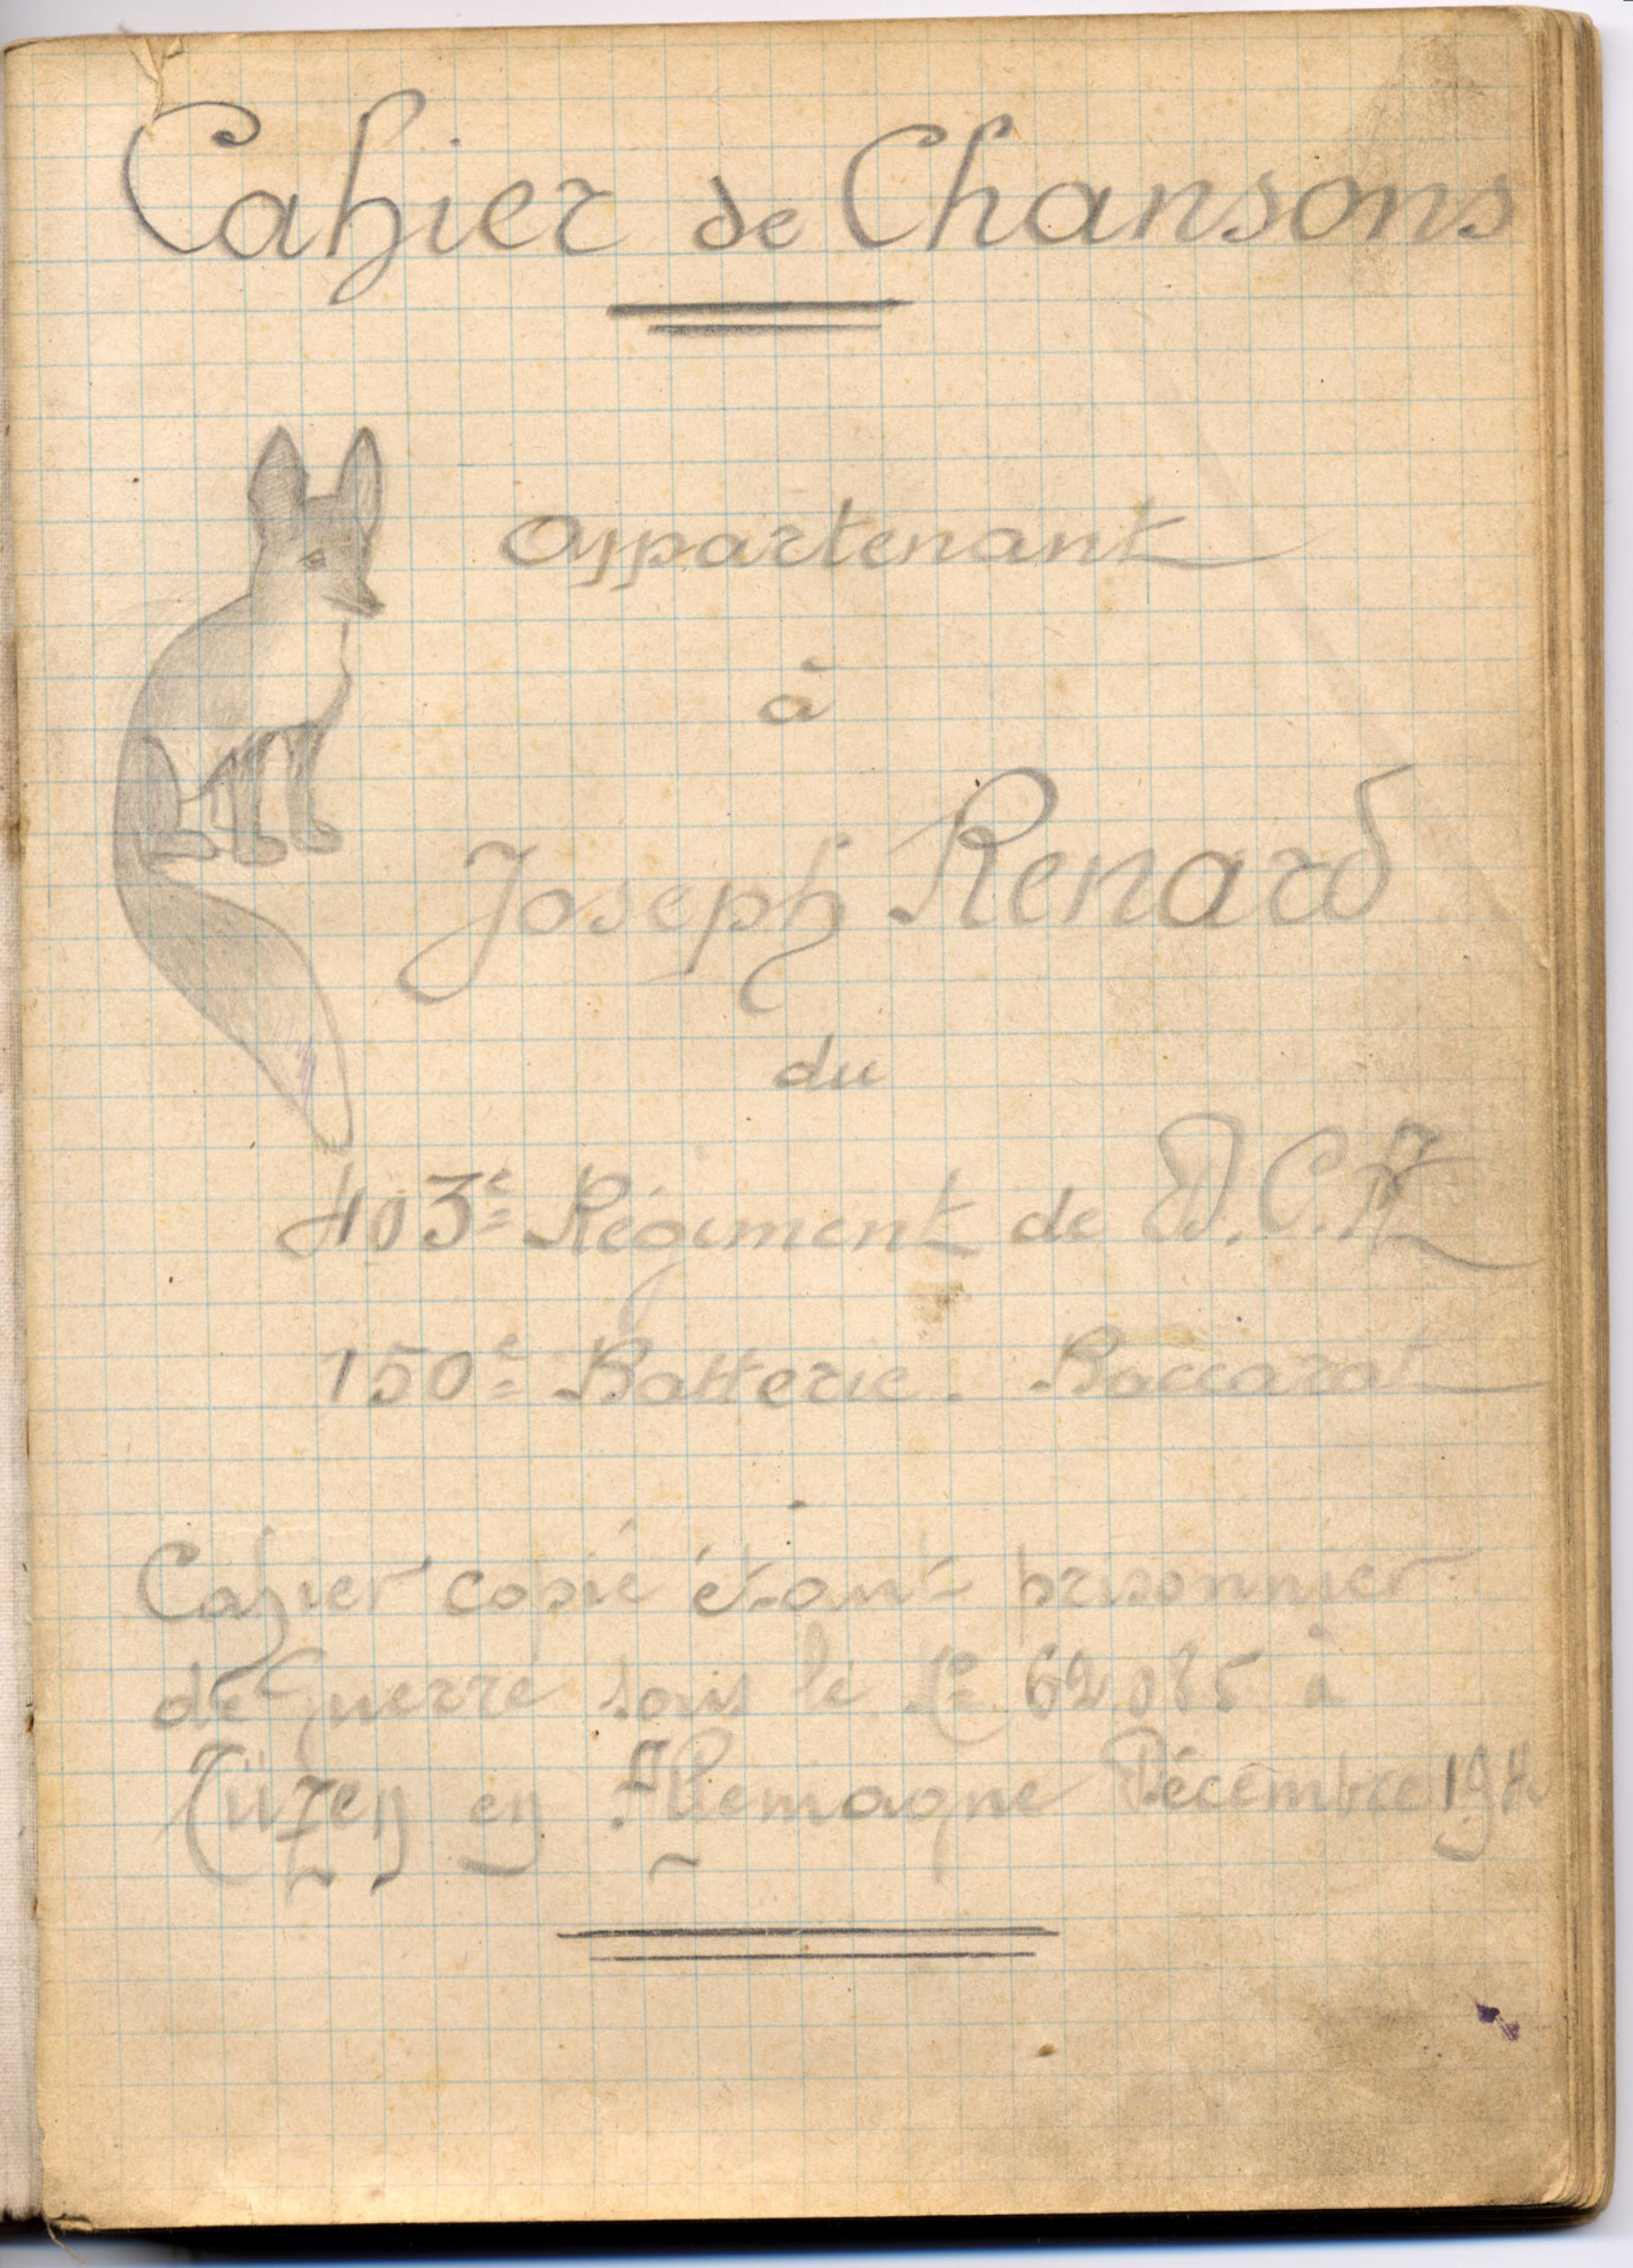 Cahier de Chansons
Appartenant
à
Joseph Renard
du
403e Régiment de D.C.A
150e Batterie. Baccarat
Cahier copié étant prisonnier
de Guerre sous le 62085 à
en Allemagne Décembre